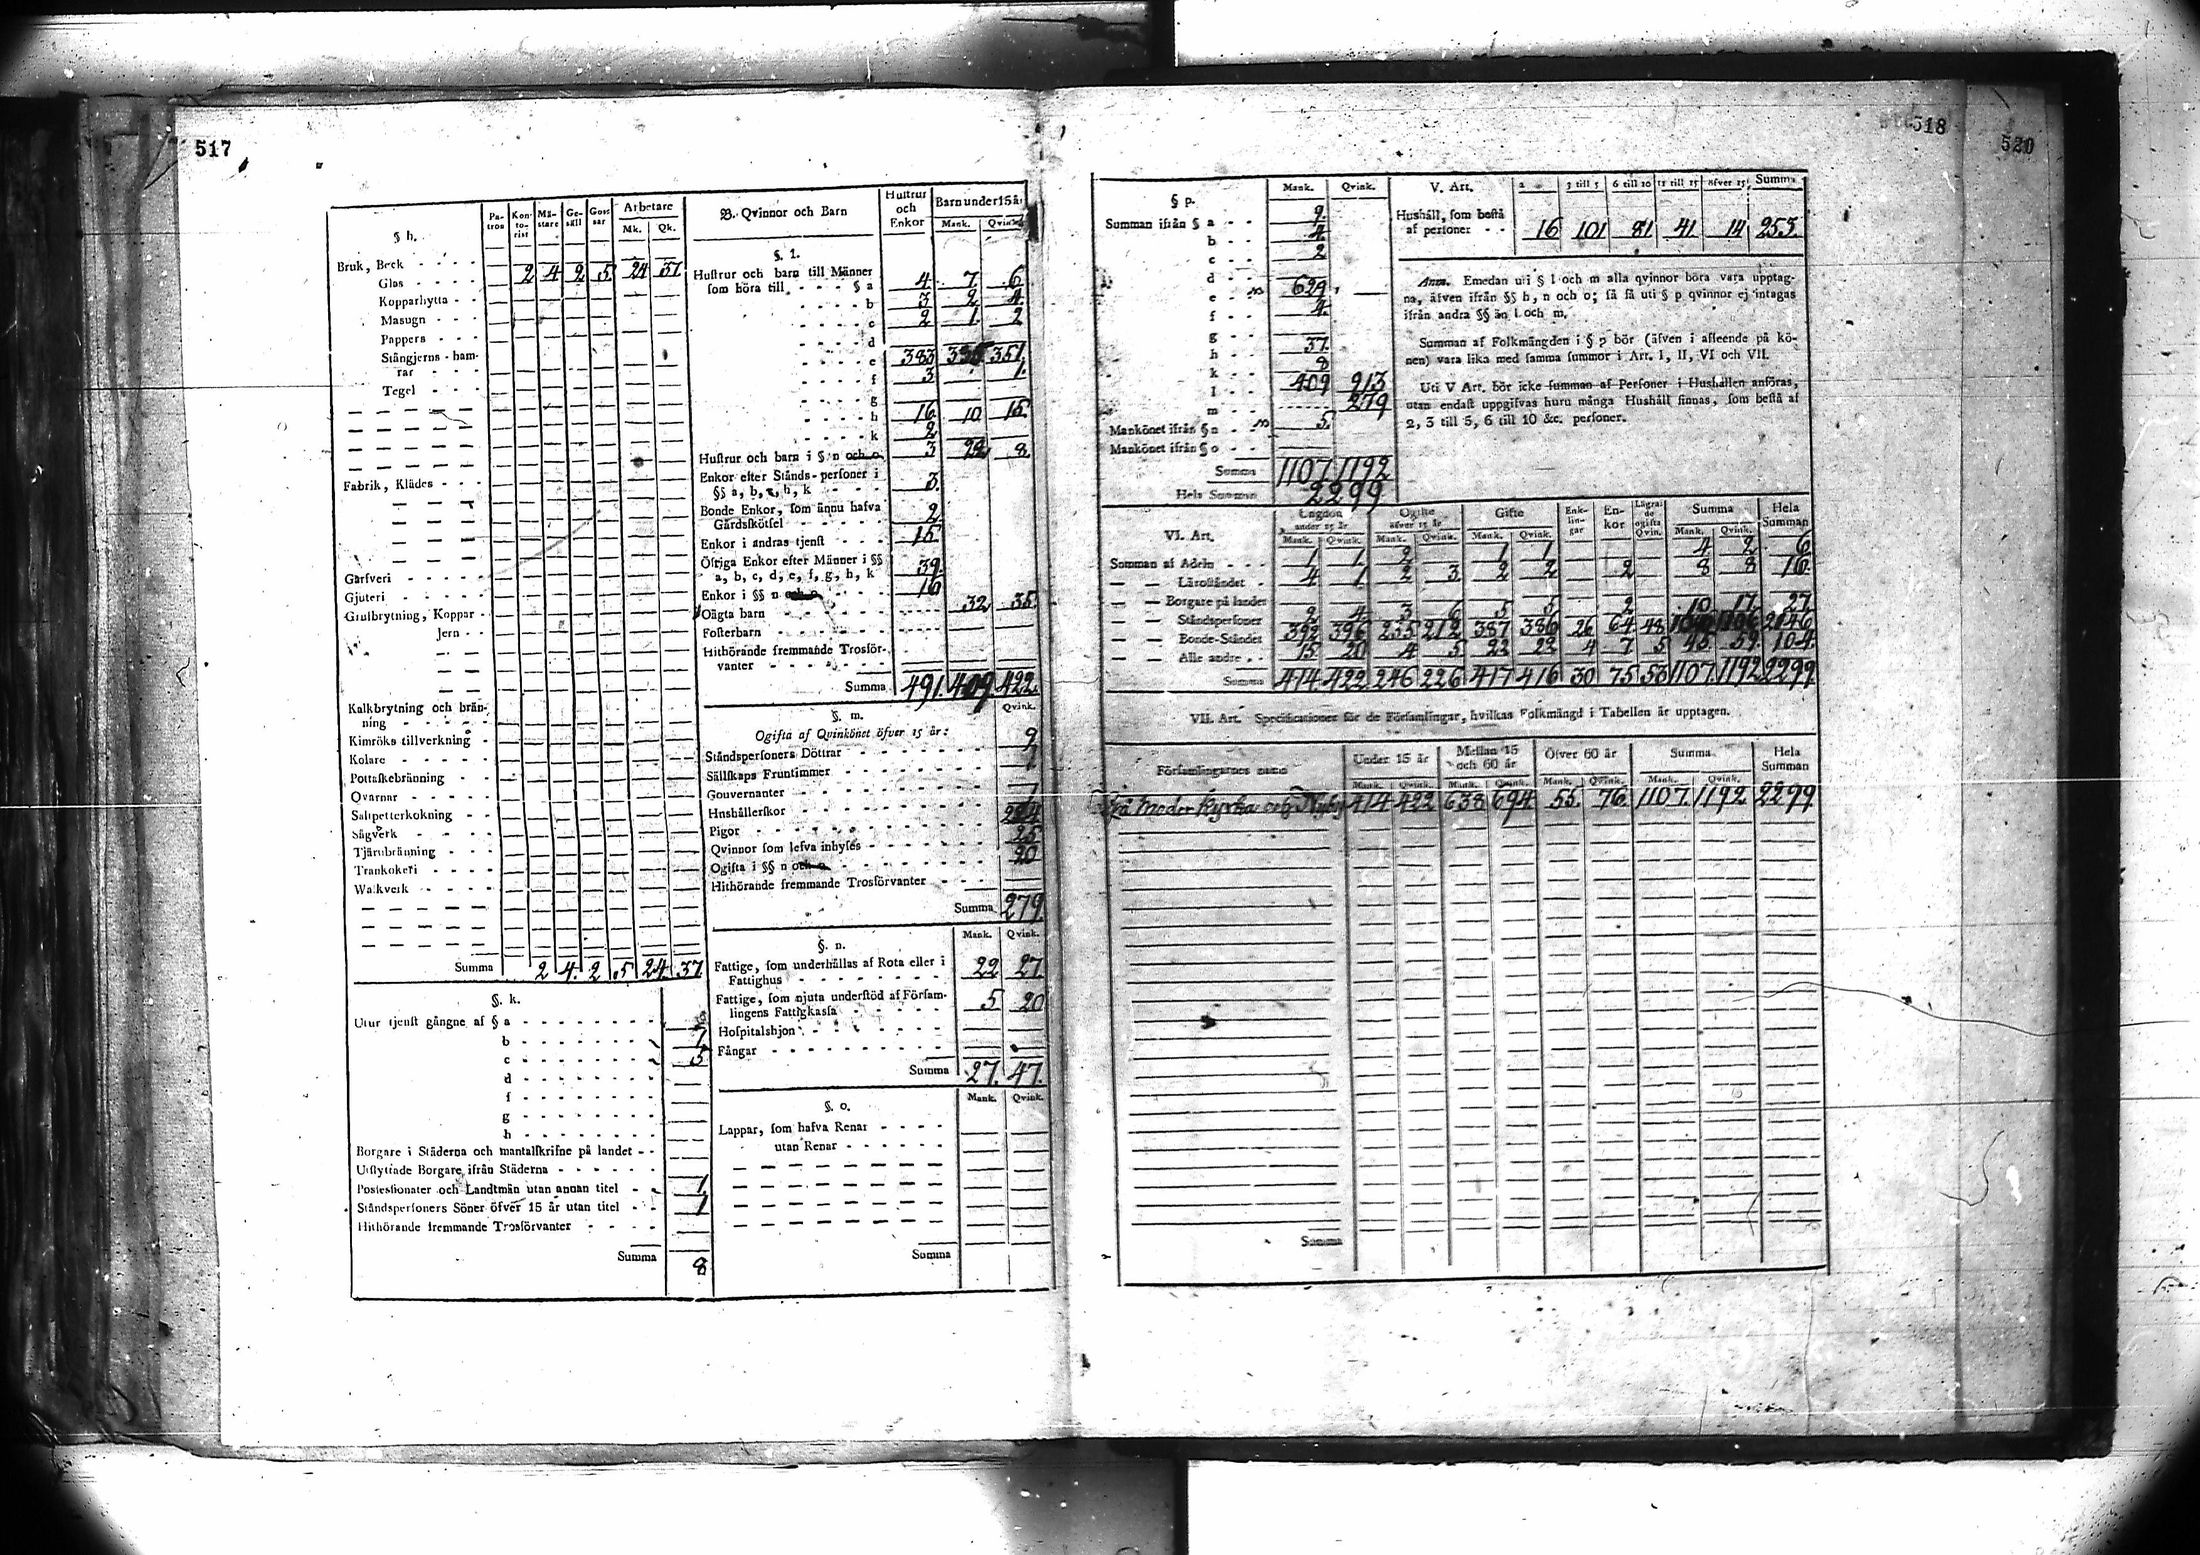 517
§ h.
Pa-
tron
Kon-
to-
rist
Mä-
stare
Ge-
säll
Goss
sar
Arbetare
Mk. Qk.
Bruk, Beck
Glas 2 4 2 5 24 37
Kopparhytta
Masugn
Pappers
Stångjerns-ham-
rar
Tegel
Fabrik, Klädes
Garfveri
Gjuteri
Grufbrytning, Koppar
Jern
Kalkbrytning och brän-
ning
Kimröks tillverkning
Kolare
Pottaskebränning
Qvarnar
Saltpetterkokning
Sågverk
Tjärubränning
Trankokeri
Walkverk
Summa 2 4. 2 5 24. 37
§. k.
Utur tjenst gångne af § a
b 1
c 5
d
f
g
h
Borgare i Städerna och mantalskrifne på landet
Utflyttade Borgare ifrån Städerna
Possessionater och Landtmän utan annan titel 1
Ståndspersoners Söner öfver 15 år utan titel 1
Hithörande fremmande Trosförvanter
Summa 8
B. Qvinnor och Barn
Hustrur
och
Enkor
Barn under 15 år
Mank. Qvink.
§. l.
Hustrur och barn till Männer
som höra till § a 4 7 6
b 3 2 4.
c 2 1. 2
d
e 383 335 351
f 3 1.
g
h 16 10 15.
k 2
Hustrur och barn i § n och o 3 22 8
Enkor efter Stånds-personer i
§§ a, b, c, h, k 3.
Bonde Enkor, som ännu hafva
Gårdsskötsel 2
Enkor i andras tjenst 15.
Öfriga Enkor efter Männer i §§
a, b, c, d, e, f, g, h, k 39.
Enkor i §§ n och o 16
Oägta barn 32 35.
Fosterbarn
Hithörande fremmande Trosför-
vanter
Summa 491. 409 422.
§. m. Qvink.
Ogifta af Qvinkönet öfver 15 år:
Ståndspersoners Döttrar 9
Sällskaps Fruntimmer
Gouvernanter
Hushållerskor 1
Pigor 224
Qvinnor som lefva inhyses 25
Ogifta i §§ n och o 20
Hithörande fremmande Trosförvanter
Summa 279.
§. n. Mank. Qvink.
Fattige, som underhållas af Rota eller i
Fattighus 22 27
Fattige, som njuta understöd af Försam-
lingens Fattigkassa 5 20
Hospitalshjon
Fångar
Summa 27. 47.
§. o. Mank. Qvink.
Lappar, som hafva Renar
utan Renar
Summa
518
520
§ p. Mank. Qvink.
Summan ifrån § a 9.
b 4.
c 2
d
e 629.
f 4.
g
h 37.
k 8
l 409 913
m 279
Mankönet ifrån § n 5.
Mankönet ifrån § o
Summa 1107. 1192
Hela Summan 2299
V. Art. 2 3 till 5 6 till 10 11 till 15 öfver 15 Summa
Hushåll, som bestå
af personer 16 101 81 41 14 253.
Anm. Emedan uti § l och m alla qvinnor böra vara upptag-
na, äfven ifrån §§ h, n och o; så få uti § p qvinnor ej intagas
ifrån andra §§ än l och m.
Summan af Folkmängden i § p bör (äfven i afseende på kö-
nen) vara lika med samma summor i Art. I, II, VI och VII.
Uti V Art. bör icke summan af Personer i Hushållen anföras,
utan endast uppgifvas huru många Hushåll finnas, som bestå af
2, 3 till 5, 6 till 10 &c. personer.
VI. Art.
Ungdom
under 15 år
Ogifte
öfver 15 år
Gifte
Enk-
lin-
gar
En-
kor
Lägra-
de
ogifta
Qvin.
Summa
Hela
Summan
Mank. Qvink. Mank. Qvink. Mank. Qvink. Mank. Qvink.
Summan af Adeln 1 1 2 1 1 4 2 6
Läroståndet 4 1 2 3 2 2 2 8 8 16.
Borgare på landet
Ståndspersoner 2 4 3 6 5 5 2 10 17. 27.
Bonde-Ståndet 392 396 235 212 387 386 26 64 48 1040 1106 2146
Alle andre 15 20 4 5 22 22 4 7 5 45. 59. 104.
Summa 414 422 246 226 417 416 30 75 53 1107. 1192 2299.
VII. Art. Specificationer för de Församlingar, hvilkas Folkmängd i Tabellen är upptagen.
Församlingarnes namn
Under 15 år
Mellan 15
och 60 år
Öfver 60 år
Summa
Hela
Summan
Mank. Qvink. Mank. Qvink. Mank. Qvink. Mank. Qvink.
Moder Kyrka och 414 422 638 694 55. 76. 1107. 1192 2299.
Summa